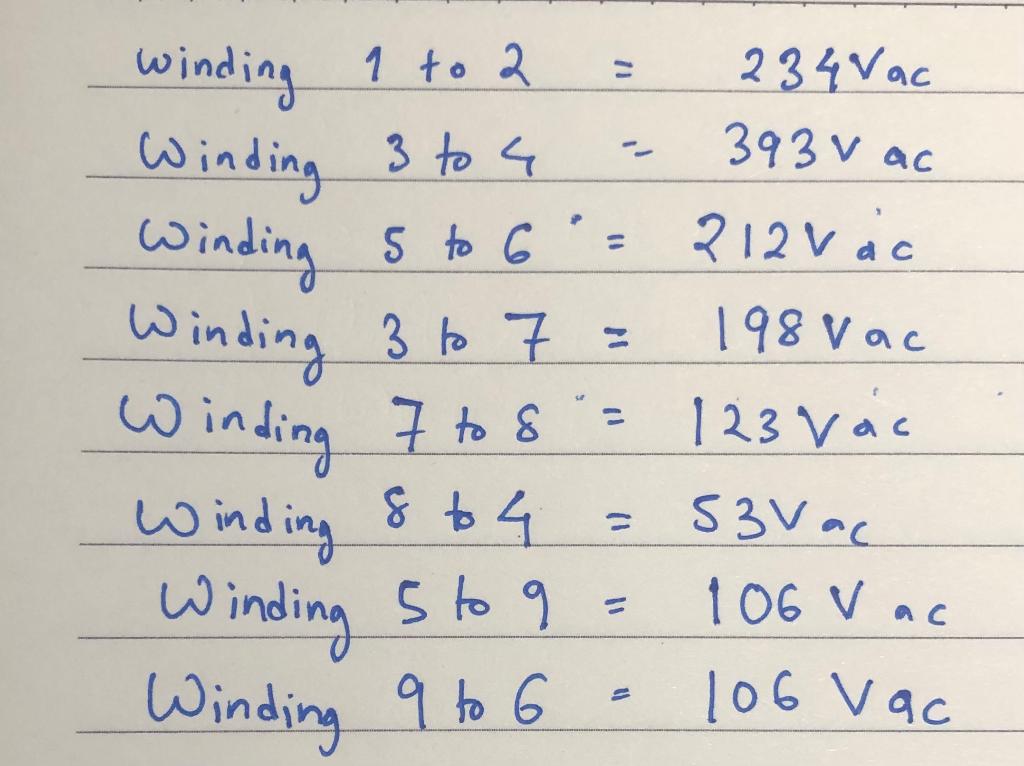 winding 1 to 2 = 234Vac
Winding 3 to 4 = 393V ac
Winding 5 to 6 = 212V ac
Winding 3 to 7 = 198 Vac
Winding 7 to 8 = 123 Vac
Winding 8 to 4 = 53Vac
Winding 5 to 9 = 106 V ac
Winding 9 to 6 = 106 Vac